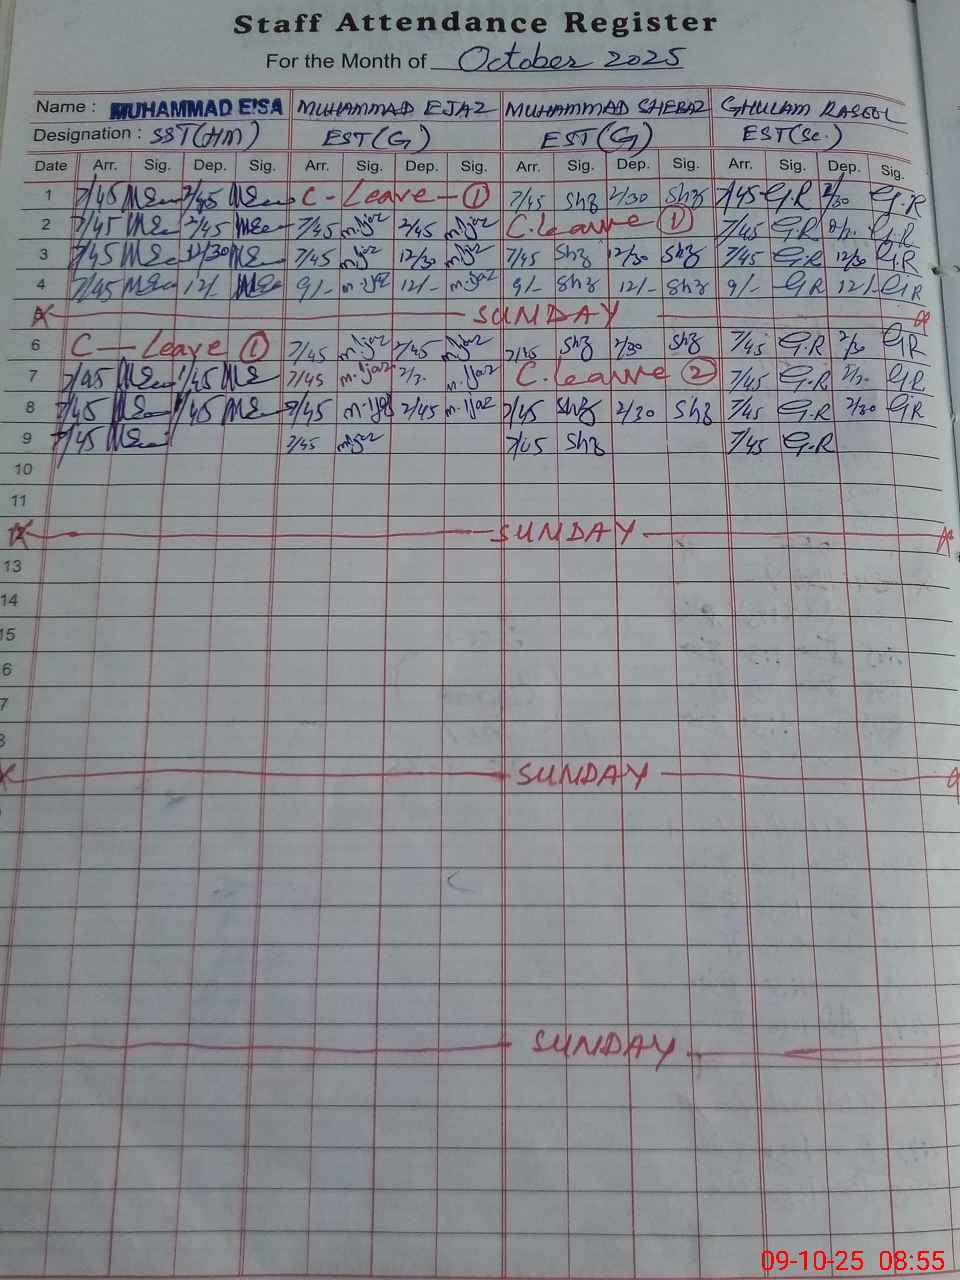 Staff Attendance Register
For the Month of October 2025
Name : MUHAMMAD EISA MUHAMMAD EJAZ MUHAMMAD SHEBAZ GHULAM RASOOL
Designation : SST(HM) EST(G) EST(G) EST(Sc.)
Date Arr. Sig. Dep. Sig. Arr. Sig. Dep. Sig. Arr. Sig. Dep. Sig. Arr. Sig. Dep. Sig.
1 7/45 2/45 C-Leave-① 7/45 Shz 2/30 Shz 7/45 G.R 2/30 G.R
2 7/45 2/45 7/45 m.ijaz 2/45 m.ijaz C.leave ① 7/45 G.R G.R
3 7/45 12/30 7/45 m.ijaz 12/30 m.ijaz 7/45 Shz 12/30 Shz 7/45 G.R 12/30 G.R
4 7/45 12/- 9/- m.ijaz 12/- m.ijaz 9/- Shz 12/- Shz 9/- G.R 12/- G.R
SUNDAY
6 C-Leave ① 7/45 m.ijaz 2/45 m.ijaz 7/45 Shz 2/30 Shz 7/45 G.R 2/30 G.R
7 7/45 1/45 7/45 m.ijaz m.ijaz C.leave ② 7/45 G.R G.R
8 7/45 1/45 7/45 m.ijaz 2/45 m.ijaz 7/45 Shz 2/30 Shz 7/45 G.R 2/30 G.R
9 7/45 7/45 m.ijaz 7/45 Shz 7/45 G.R
10
11
12 SUNDAY
13
14
15
6
7
8
SUNDAY
SUNDAY
09-10-25 08:55